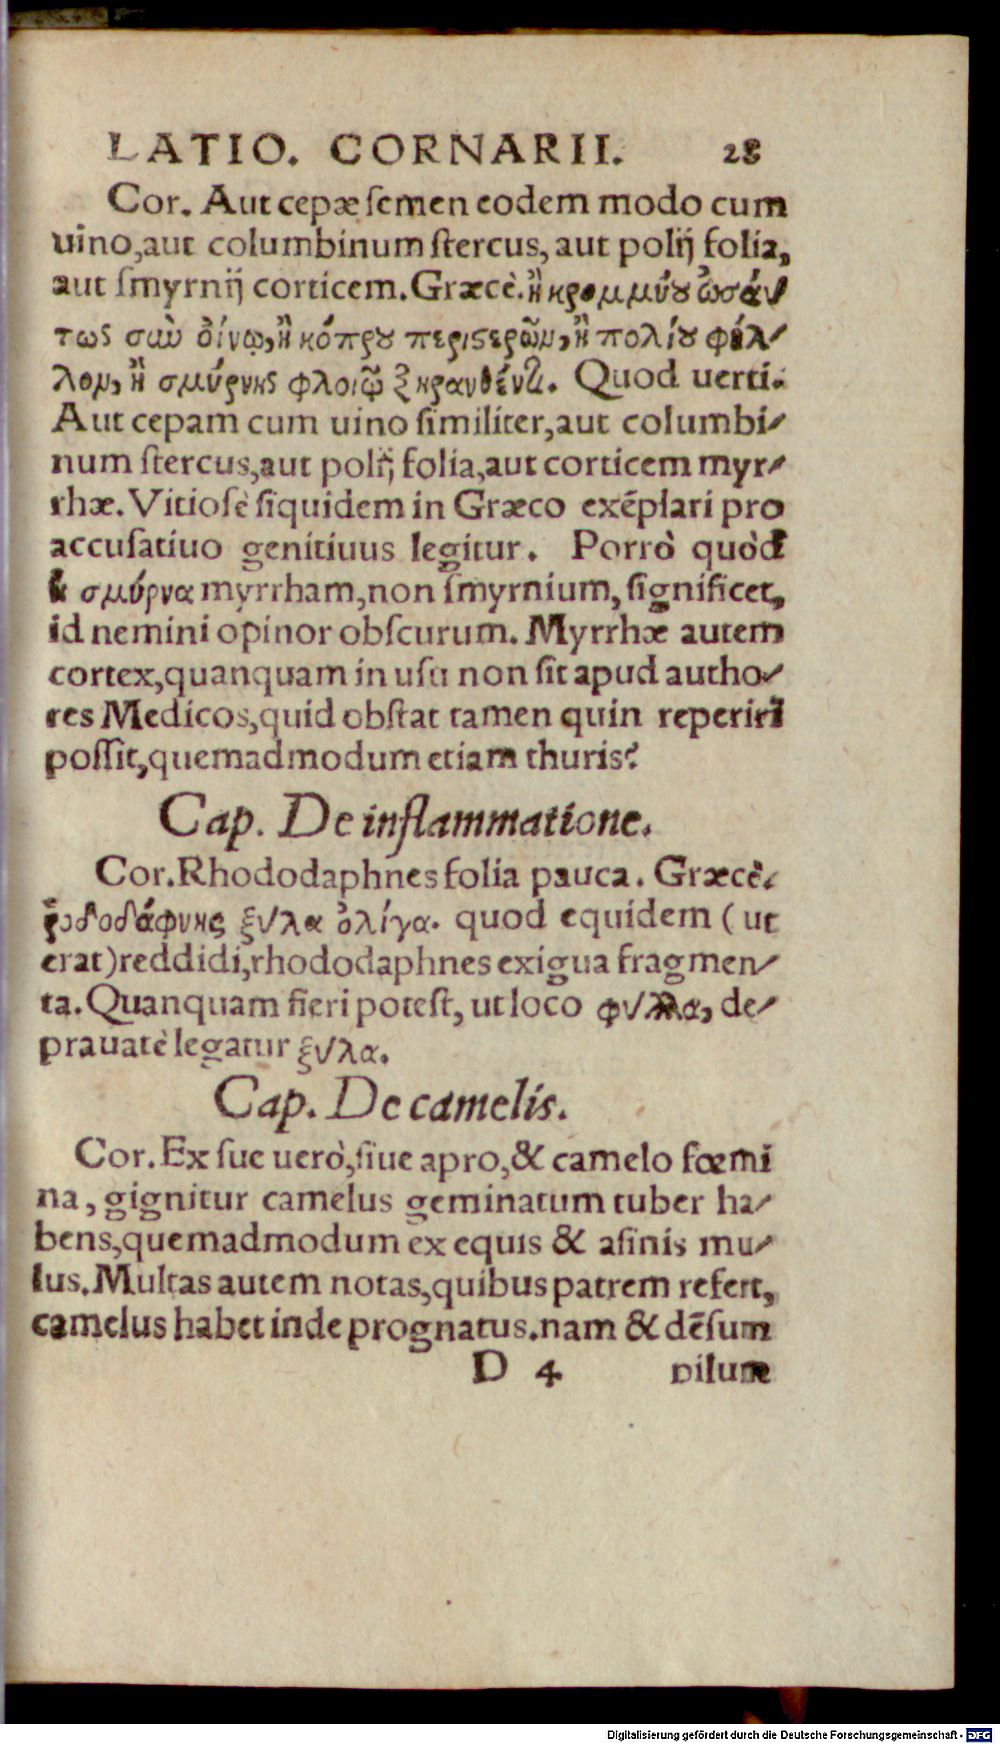 LATIO. CORNARII. 28
Cor. Aut cepæ semen eodem modo cum
uino, aut columbinum stercus, aut polij folia,
aut smyrnij corticem. Græcè. ἢ κρομμύου ὡσάυ
τως σὺν ὀίνῳ, ἢ κόπρου περιστερῶν, ἢ πολίου φύλ-
λον, ἢ σμύρνης φλοιῷ ξηρανθέντι. Quod uerti.
Aut cepam cum uino similiter, aut columbi-
num stercus, aut polij folia, aut corticem myr-
rhæ. Vitiosè siquidem in Græco exẽplari pro
accusatiuo genitiuus legitur. Porrò quòd
ἡ σμύρνα myrrham, non smyrnium, significet,
id nemini opinor obscurum. Myrrhæ autem
cortex, quanquam in usu non sit apud autho-
res Medicos, quid obstat tamen quin reperiri
possit, quemadmodum etiam thuris?
Cap. De inflammatione.
Cor. Rhododaphnes folia pauca. Græcè.
ῥοδοδάφνης ξύλα ὀλίγα. quod equidem (ut
erat) reddidi, rhododaphnes exigua fragmen-
ta. Quanquam fieri potest, ut loco φύλλα, de-
prauatè legatur ξύλα.
Cap. De camelis.
Cor. Ex sue uerò, siue apro, & camelo fœmi
na, gignitur camelus geminatum tuber ha-
bens, quemadmodum ex equis & asinis mu-
lus. Multas autem notas, quibus patrem refert,
camelus habet inde prognatus. nam & dẽsum
D 4 pilum
Digitalisierung gefördert durch die Deutsche Forschungsgemeinschaft - DFG